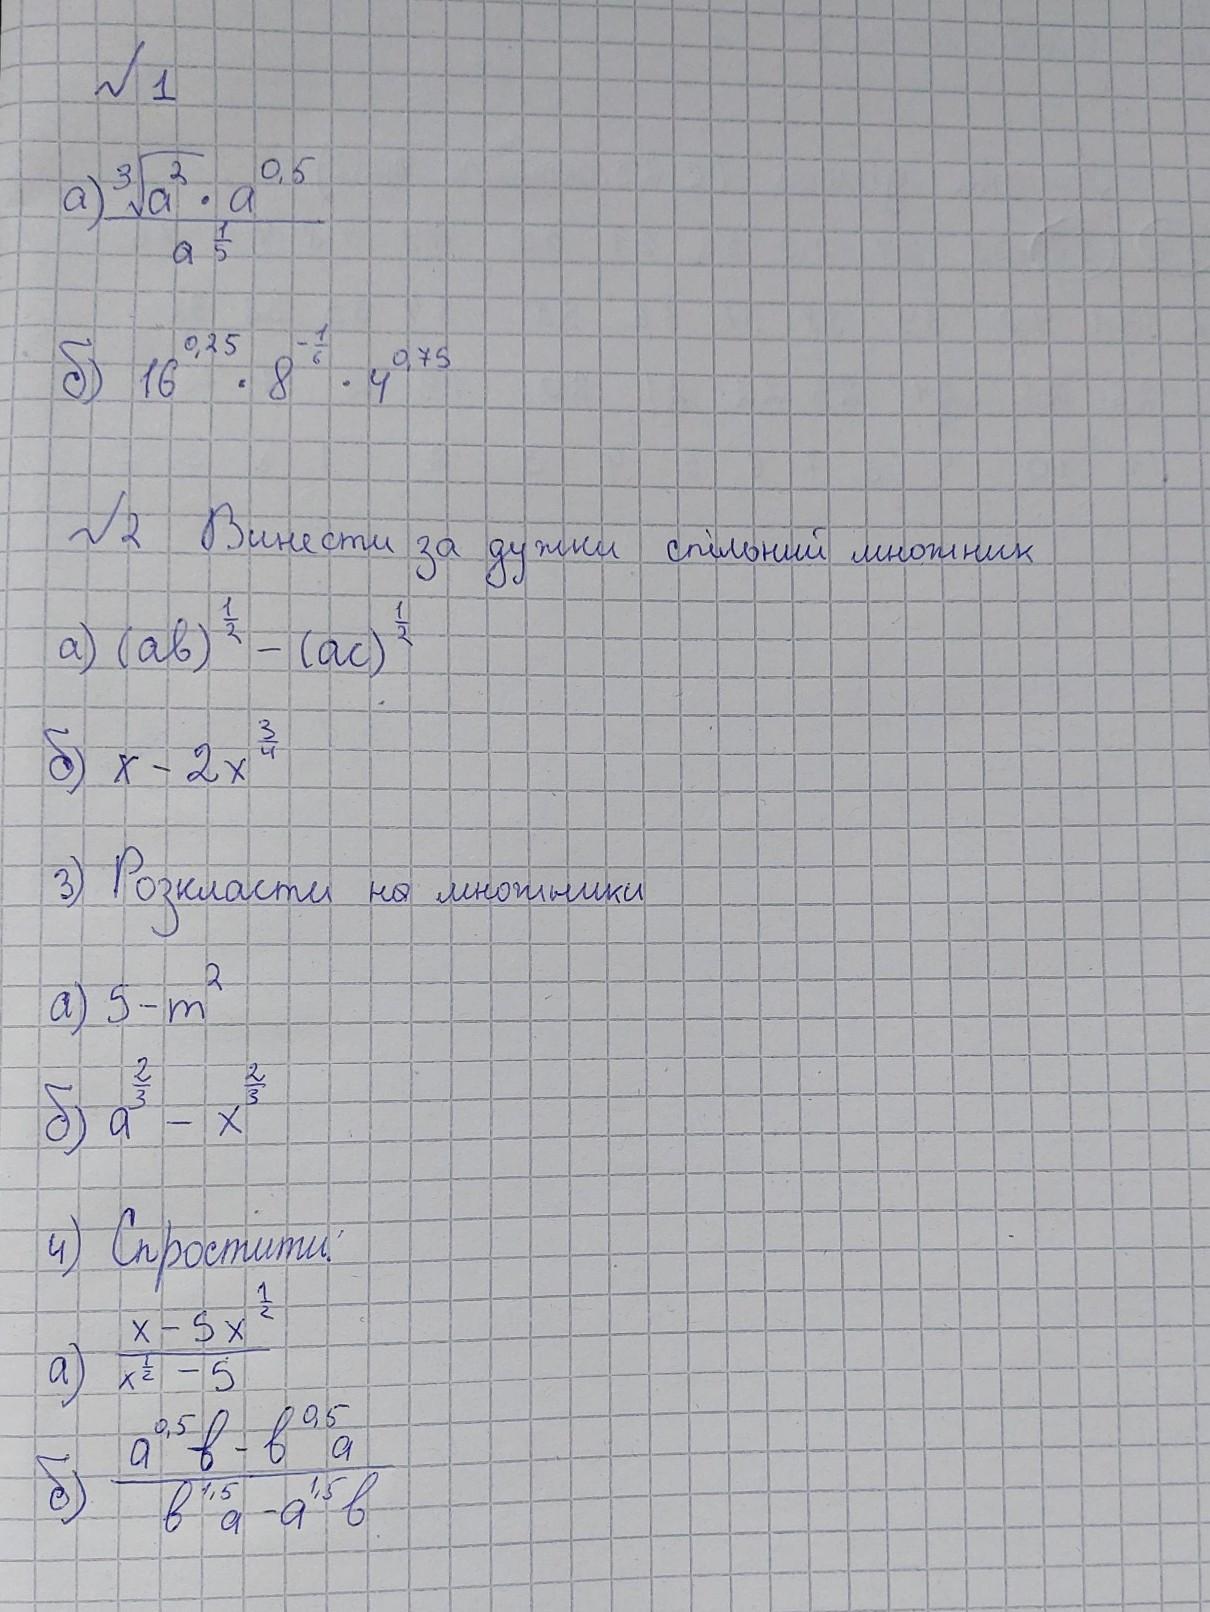 №1
а) ∛a² · a^0,5 / a^(1/5)
б) 16^0,25 · 8^(-1/6) · 4^0,75
№2 Винести за дужки спільний множник
а) (ab)^(1/2) - (ac)^(1/2)
б) x - 2x^(3/4)
3) Розкласти на множники
а) 5 - m²
б) a^(2/3) - x^(2/3)
4) Спростити:
а) (x - 5x^(1/2)) / (x^(1/2) - 5)
б) (a^0,5 b - b^0,5 a) / (b^1,5 a - a^1,5 b)